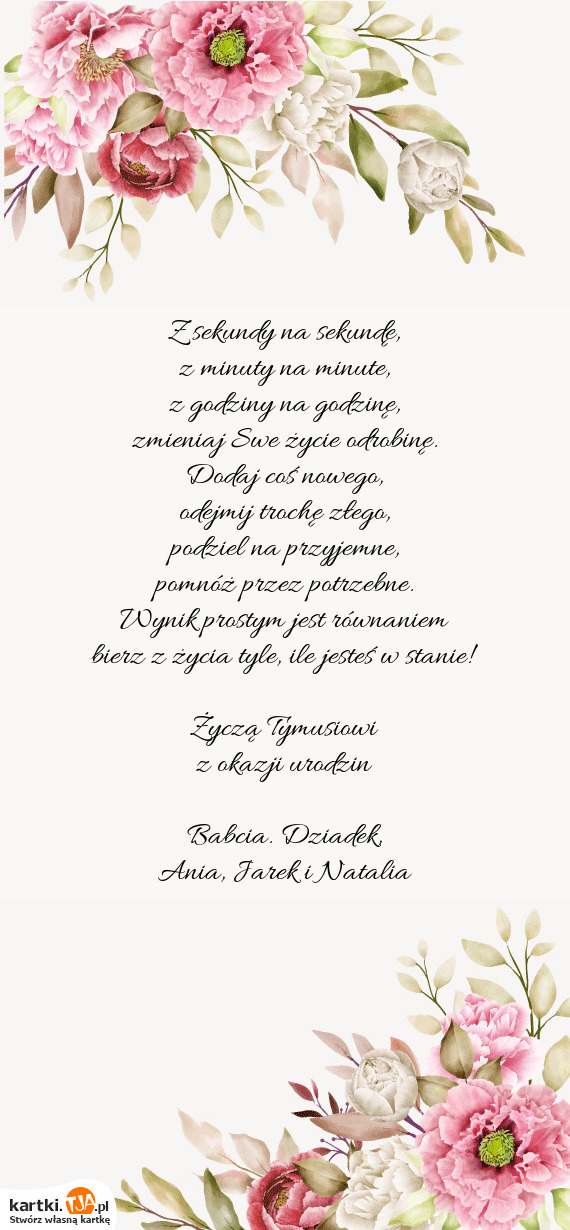 Z sekundy na sekundę,
z minuty na minute,
z godziny na godzinę,
zmieniaj Swe życie odrobinę.
Dodaj coś nowego,
odejmij trochę złego,
podziel na przyjemne,
pomnóż przez potrzebne.
Wynik prostym jest równaniem
bierz z życia tyle, ile jesteś w stanie!
Życzą Tymusiowi
z okazji urodzin
Babcia. Dziadek,
Ania, Jarek i Natalia
kartki.TJA.pl
Stwórz własną kartkę